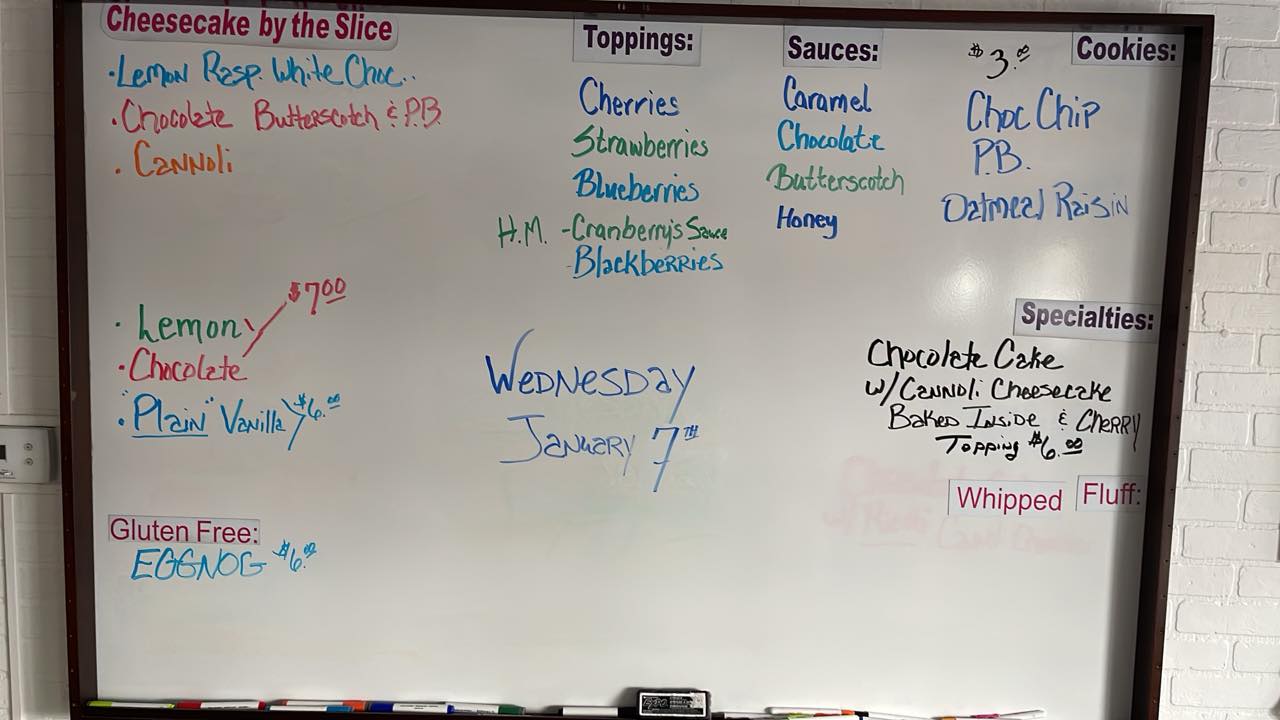 Cheesecake by the Slice
·Lemon Rasp. White Choc..
·Chocolate Butterscotch & P.B.
·Cannoli
$7.00
·Lemon
·Chocolate
·"Plain" Vanilla $6.00
Gluten Free:
EGGNOG $6.00
Toppings:
Cherries
Strawberries
Blueberries
H.M. -Cranberry's Sauce
-Blackberries
Wednesday
January 7TH
Sauces:
Caramel
Chocolate
Butterscotch
Honey
$3.00 Cookies:
Choc Chip
P.B.
Oatmeal Raisin
Specialties:
Chocolate Cake
w/ Cannoli Cheesecake
Baked Inside & Cherry
Topping $6.00
Whipped Fluff:
EXPO